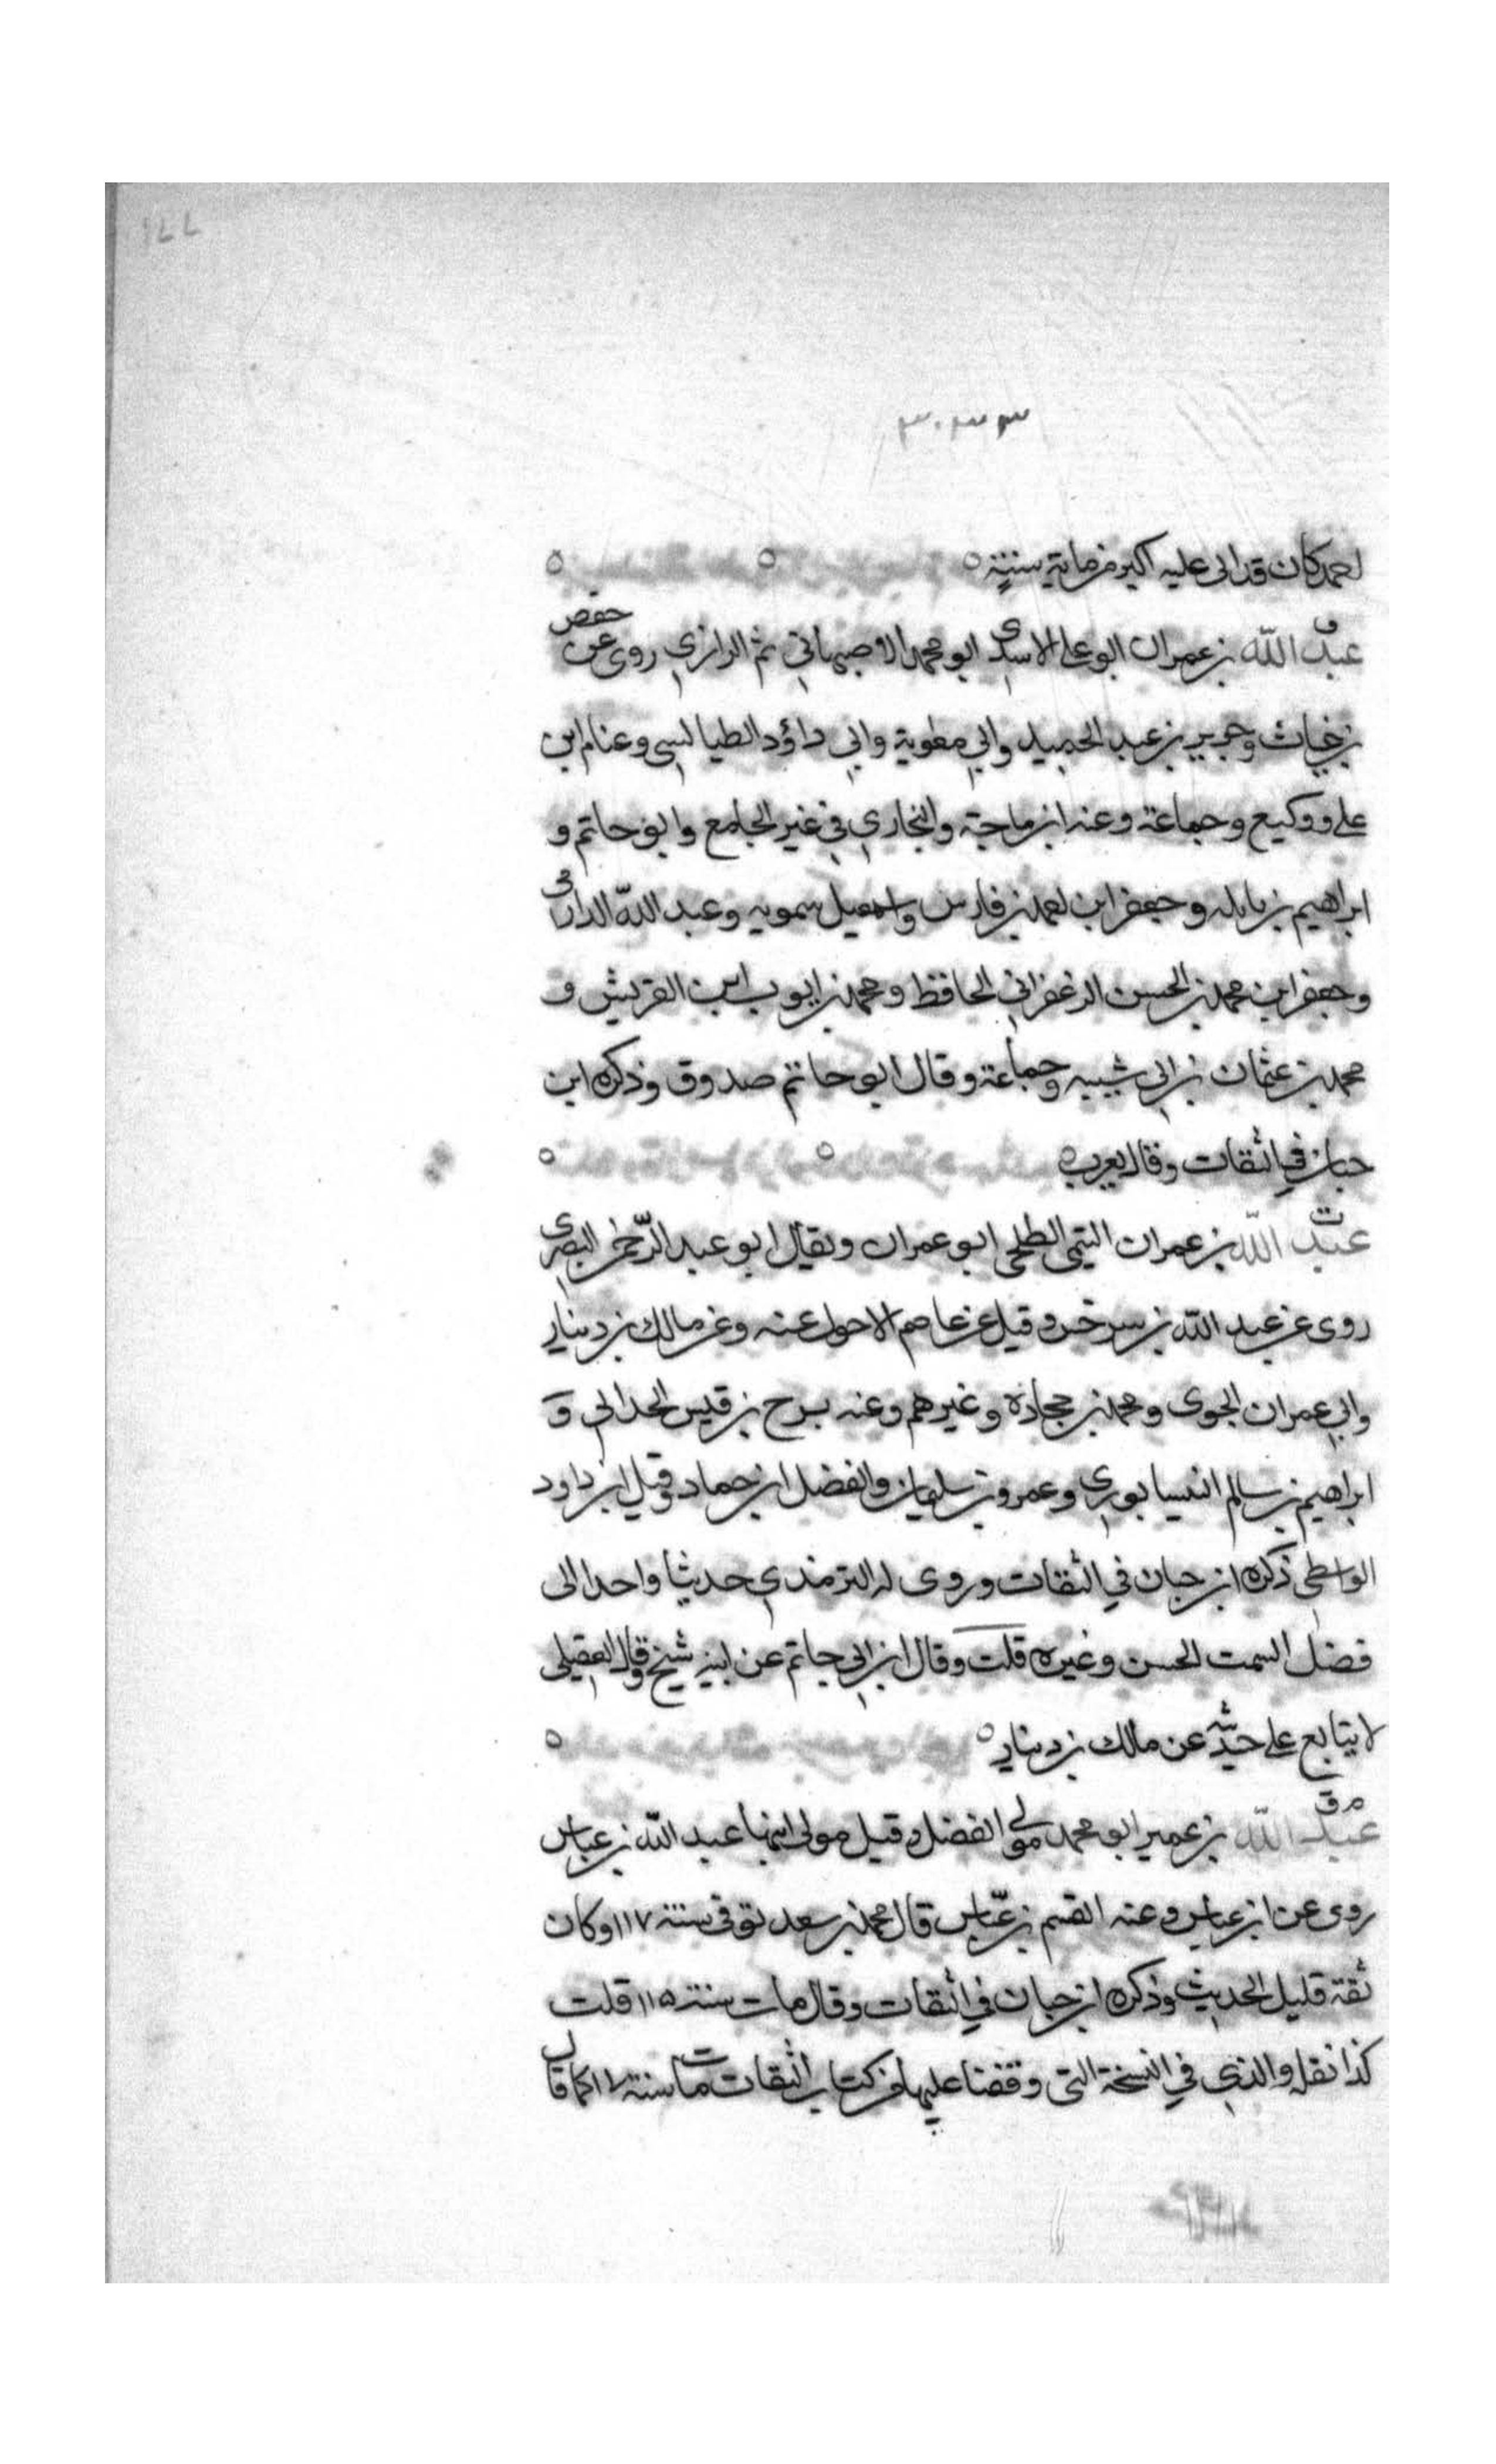 ١٤٤
٣٠٣٣
احمد كان قد اتى عليه اكثر من ماية سنة
ق
عبد الله بن عمران ابو علي الاسدي ابو محمد الاصبهاني ثم الرازي روى عن حفص
بن غياث وجرير بن عبد الحميد وابي معوية وابي داؤد الطيالسي وعثام ابن
علي ووكيع وجماعة وعنه ابن ماجة والبخاري في غير الجامع وابو حاتم و
ابراهيم بن نايله وجعفر ابن احمد بن فارس واسمعيل سمويه وعبد الله الدارمي
وجعفر ابن محمد بن الحسن الزعفراني الحافظ ومحمد بن ايوب ابن الضريس و
محمد بن عثمان بن ابي شيبه وجماعة وقال ابو حاتم صدوق وذكره ابن
حبان في الثقات وقال يغرب
ت
عبد الله بن عمران التيمي الطلحي ابو عمران ويقال ابو عبد الرحمن البصري
روى عن عبد الله بن سرخس وقيل عن عاصم الاحول عنه وعن مالك بن دينار
وابي عمران الجوني ومحمد بن جحادة وغيرهم وعنه نوح بن قيس الحداني و
ابراهيم بن سالم النيسابوري وعمرو بن سليمان والفضل ابن حماد وقيل ابن داود
الواسطي ذكره ابن حبان في الثقات وروى له الترمذي حديثا واحدا في
فضل السمت الحسن وغيره قلت وقال ابن ابي حاتم عن ابيه شيخ وقال العقيلي
لا يتابع على حديثه عن مالك بن دينار
م ق
عبد الله بن عمير ابو محمد مولى ام الفضل وقيل مولى ابنها عبد الله بن عباس
روى عن ابن عباس وعنه القسم بن عباس قال محمد بن سعد توفي سنة ١١٧ وكان
ثقة قليل الحديث وذكره ابن حبان في الثقات وقال مات سنة ١١٥ قلت
كذا نقل والذي في النسخة التي وقفنا عليها من كتاب الثقات مات سنة ١٧ كما قال